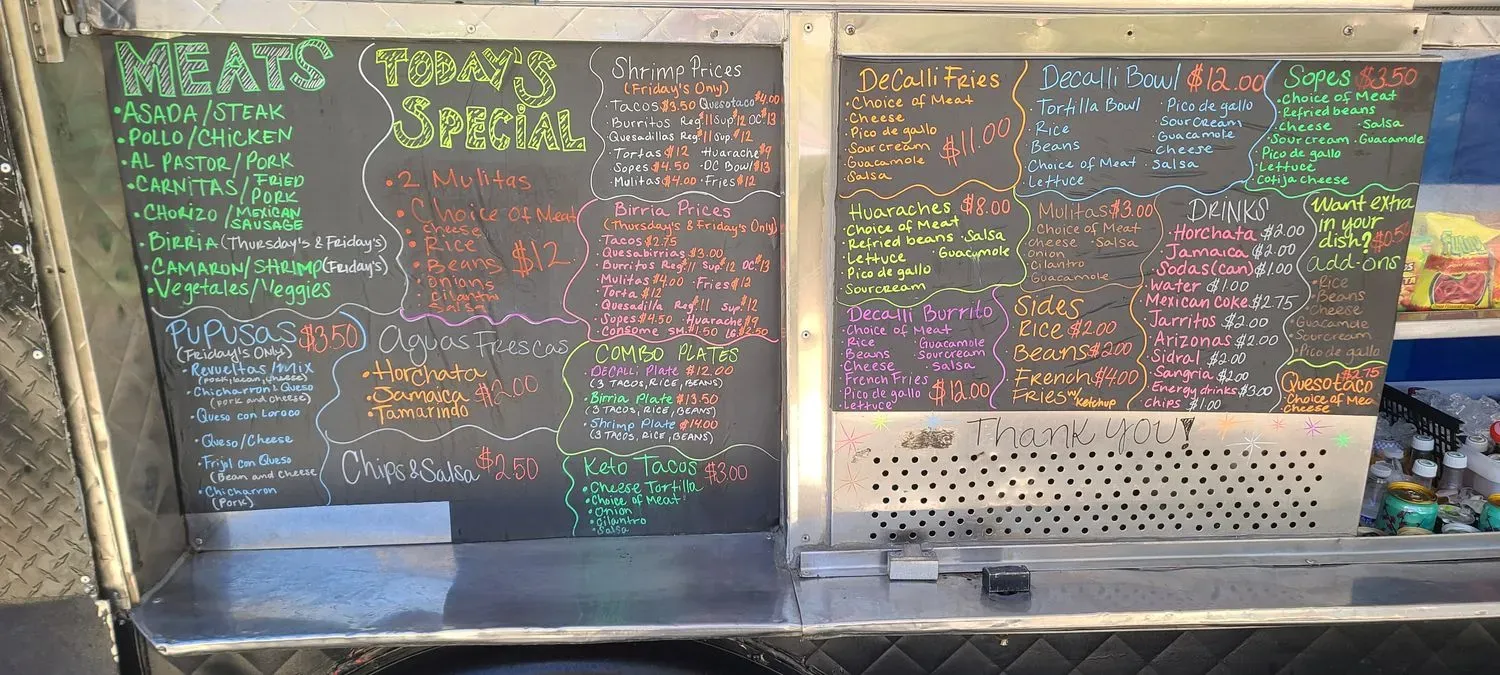 MEATS
•ASADA/STEAK
•POLLO/CHICKEN
•AL PASTOR/PORK
•CARNITAS/FRIED
PORK
•CHORIZO/MEXICAN
SAUSAGE
•BIRRIA (Thursday's & Friday's)
•CAMARON/SHRIMP (Fridays)
•Vegetales/Veggies
PUPUSAS $3.50
(Friday's ONLY)
•Revueltas/Mix
(pork, bean, cheese)
•Chicharron & Queso
(pork and cheese)
•Queso con Loroco
•Queso/Cheese
•Frijol con Queso
(Bean and Cheese)
•Chicharron
(Pork)
TODAY'S
SPECIAL
•2 Mulitas
•Choice of Meat
•cheese
•Rice
•Beans $12
•onions
•cilantro
•Salsa
Aguas Frescas
•Horchata
•Jamaica $2.00
•Tamarindo
Chips & Salsa $2.50
Shrimp Prices
(Friday's Only)
•Tacos $3.50 Quesotaco $4.00
•Burritos Reg $11 Sup $12 DC $13
•Quesadillas Reg $11 Sup $12
•Tortas $12 Huarache $9
•Sopes $4.50 •DC Bowl $13
•Mulitas $4.00 •Fries $12
Birria Prices
(Thursday's & Friday's Only)
•Tacos $2.75
•Quesabirrias $3.00
•Burritos Reg $11 Sup $12 DC $13
•Mulitas $4.00 •Fries $12
•Torta $12
•Quesadilla Reg $11 Sup $12
•Sopes $4.50 •Huarache $9
•Consome SM $1.50 LG $2.50
COMBO PLATES
•DECALLI Plate $12.00
(3 TACOS, RICE, BEANS)
•Birria Plate $13.50
(3 TACOS, RICE, BEANS)
•Shrimp Plate $14.00
(3 TACOS, RICE, BEANS)
Keto Tacos $3.00
•Cheese Tortilla
•Choice of Meat
•Onion
•cilantro
•Salsa
DeCalli Fries
•Choice of Meat
•Cheese
•Pico de gallo
•Sour cream $11.00
•Guacamole
•Salsa
Decalli Bowl $12.00
•Tortilla Bowl •Pico de gallo
•Rice •Sour Cream
•Beans •Guacamole
•Cheese
•Choice of Meat •Salsa
•Lettuce
Sopes $3.50
•Choice of Meat
•Refried beans
•Cheese •Salsa
•Sour cream •Guacamole
•Pico de gallo
•Lettuce
•Cotija cheese
Huaraches $8.00
•Choice of Meat
•Refried beans •Salsa
•Lettuce •Guacamole
•Pico de gallo
•Sourcream
Mulitas $3.00
•Choice of Meat
•cheese •Salsa
•onion
•Cilantro
•Guacamole
DRINKS
•Horchata $2.00
•Jamaica $2.00
•Sodas (can) $1.00
•Water $1.00
•Mexican Coke $2.75
•Jarritos $2.00
•Arizonas $2.00
•Sidral $2.00
•Sangria $2.00
•Energy drinks $3.00
•Chips $1.00
Want extra
in your
dish? $0.50
add-ons
•Rice
•Beans
•Cheese
•Guacamole
•Sourcream
•Pico de gallo
Decalli Burrito
•Choice of Meat
•Rice •Guacamole
•Beans •Sourcream
•Cheese •Salsa
•French Fries
•Pico de gallo $12.00
•Lettuce
Sides
Rice $2.00
Beans $2.00
French $4.00
FRIES w/ Ketchup
$2.75
Quesotaco
•Choice of Mea
•Cheese
Thank you!